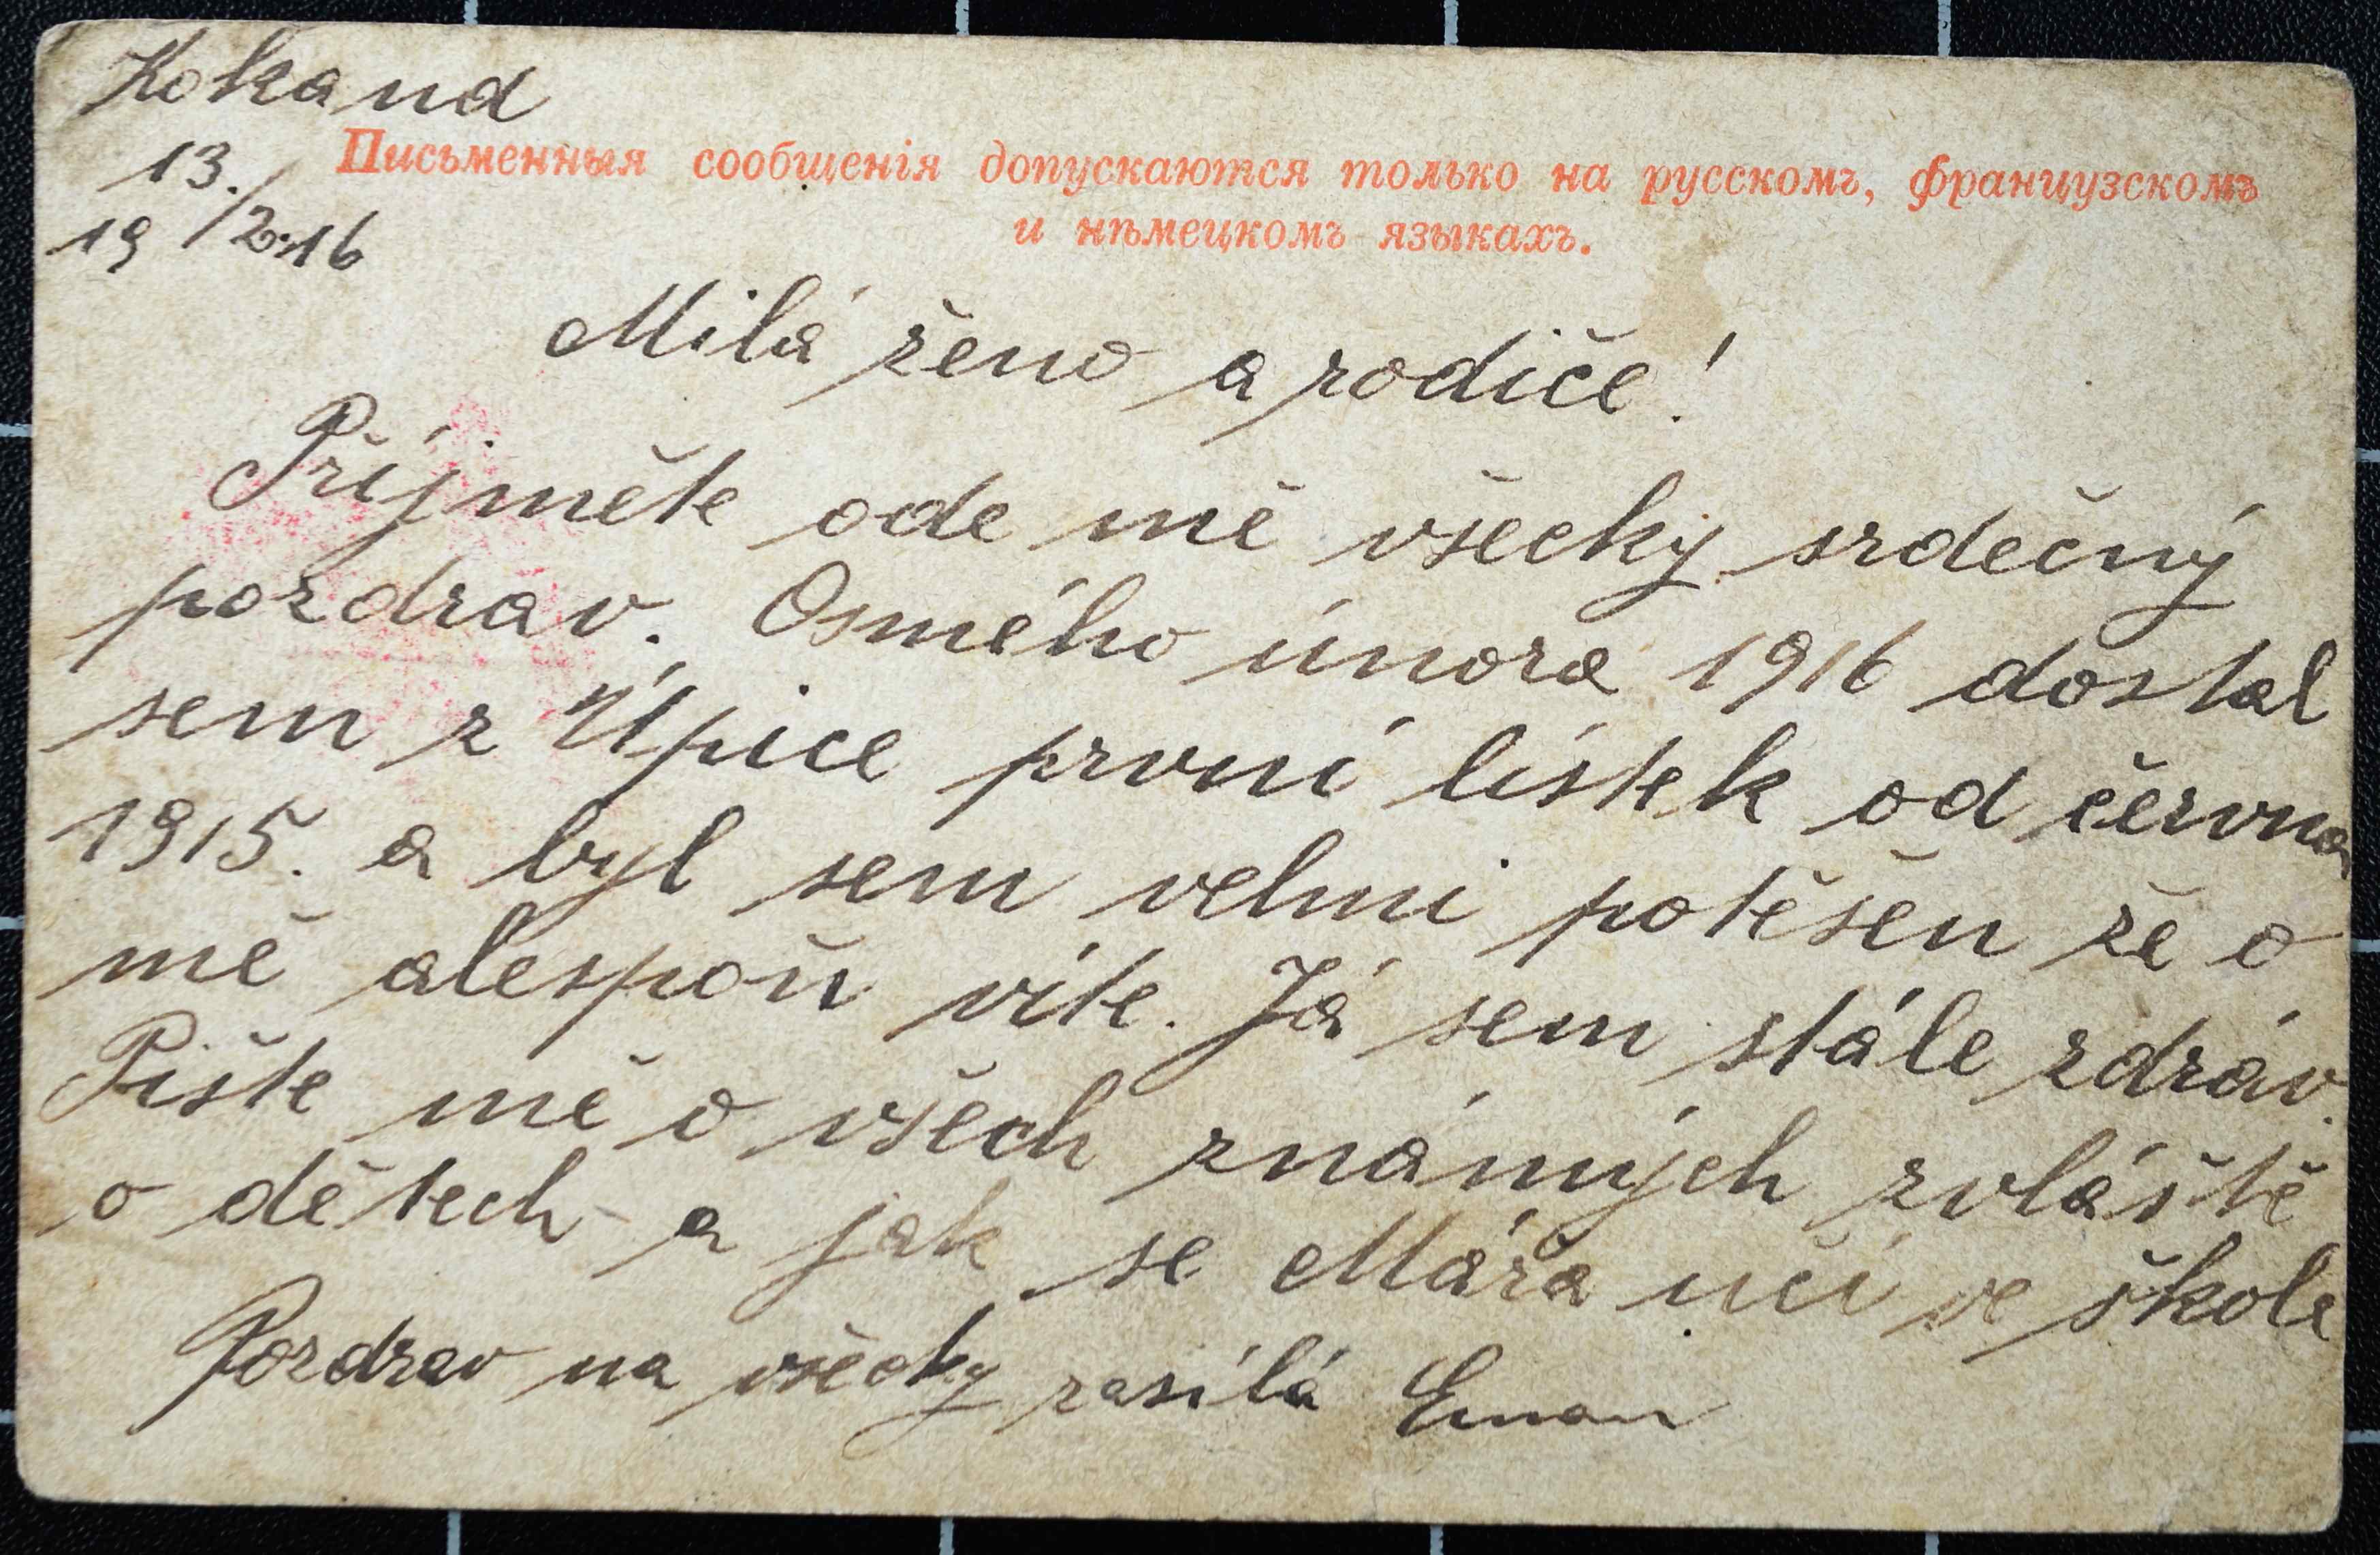 Kokand
13./
19 /2.16
Письменныя сообщенія допускаются только на русскомъ, французскомъ
и нѣмецкомъ языкахъ.
Milá ženo a rodiče!
Příjměte ode mě všecky srdečný
pozdrav. Osmého února 1916 dostal
sem z Úpice první lístek od června
1915. a byl sem velmi potěšen že o
mě alespoň víte. Já sem stále zdráv.
Pište mě o všech známých zvláště
o dětech a jak se Mářa učí ve škole
Pozdrav na všecky zasílá Eman